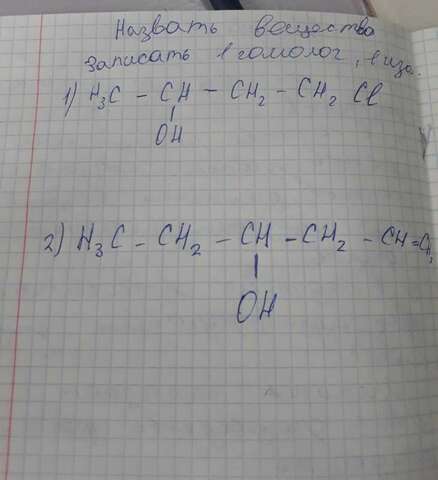 Назвать вещества
Записать 1 гомолог, 1 изо.
1) H₃C - CH - CH₂ - CH₂ Cl
OH
2) H₃C - CH₂ - CH - CH₂ - CH=
OH